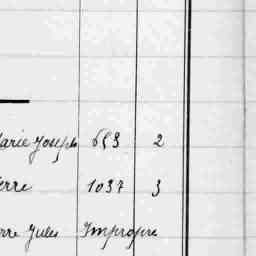 Marie Joseph 653 2
erre 1037 3
rre Jules Impropre